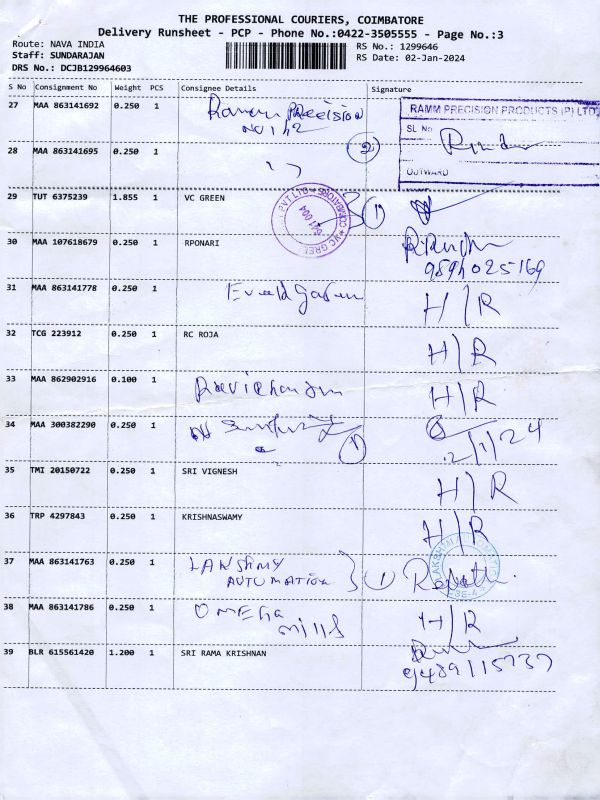 THE PROFESSIONAL COURIERS, COIMBATORE
Delivery Runsheet - PCP - Phone No.:0422-3505555 - Page No.:3
Route: NAVA INDIA
Staff: SUNDARAJAN
DRS No.: DCJB129964603
RS No.: 1299646
RS Date: 02-Jan-2024
S No Consignment No Weight PCS Consignee Details Signature
27 MAA 863141692 0.250 1 Precision
RAMM PRECISION PRODUCTS (P) LTD
SL No
OUTWARD
28 MAA 863141695 0.250 1 2
29 TUT 6375239 1.855 1 VC GREEN 1
30 MAA 107618679 0.250 1 RPONARI
9894025169
31 MAA 863141778 0.250 1 H/R
32 TCG 223912 0.250 1 RC ROJA H/R
33 MAA 862902916 0.100 1 Ravichandran H/R
34 MAA 300382290 0.250 1 1 2/1/24
35 TMI 20150722 0.250 1 SRI VIGNESH H/R
36 TRP 4297843 0.250 1 KRISHNASWAMY H/R
37 MAA 863141763 0.250 1 LAKSHMY
AUTOMATION 1
38 MAA 863141786 0.250 1 OMEGA
mills H/R
39 BLR 615561420 1.200 1 SRI RAMA KRISHNAN
9489115737